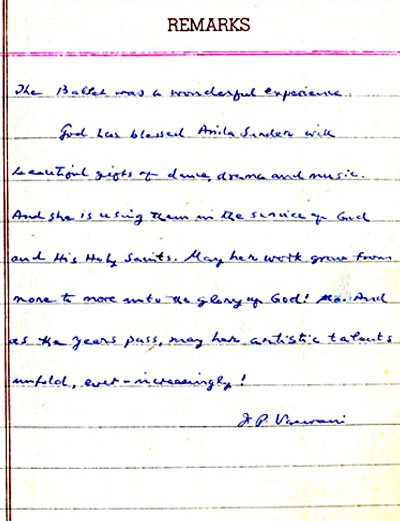 REMARKS
The Ballet was a wonderful experience.
God has blessed Anila Sunder with
beautiful gifts of dance, drama and music.
And she is using them in the service of God
and His Holy Saints. May her work grow from
more to more unto the glory of God! And
as the years pass, may her artistic talents
unfold, ever-increasingly!
J. P. Vaswani